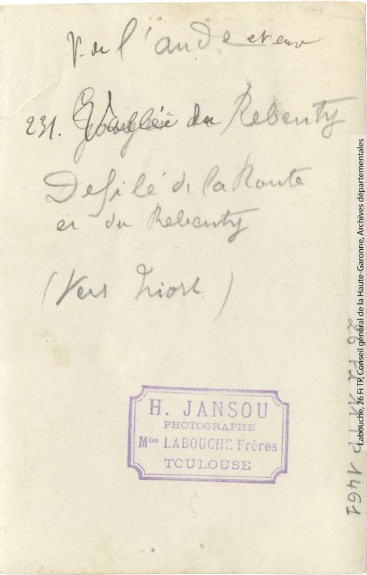 V. de l'Aude et env
231. Vallée du Rebenty
Defilé de la Route
et du Rebenty
(Vers Niort)
H. JANSOU
PHOTOGRAPHE
Mon LABOUCHE Frères
TOULOUSE
Labouche, 26 Fi TP, Conseil général de la Haute-Garonne, Archives départementales
26 FI TP 1461